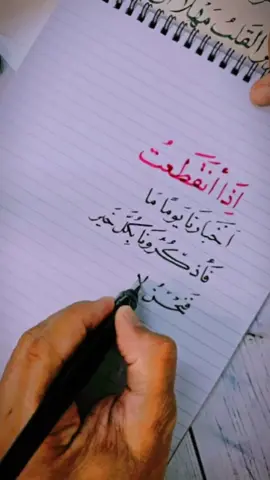 القلب مهلا
إذا أنقطعت
اخبارنا يومًا ما
فأذكرونا بكل خير
فنحن لا